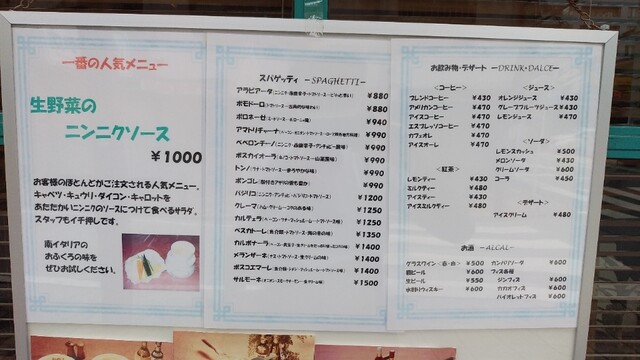 一番の人気メニュー
生野菜の
ニンニクソース
￥1000
お客様のほとんどがご注文される人気メニュー。
キャベツ・キュウリ・ダイコン・キャロットを
あたたかいニンニクのソースにつけて食べるサラダ。
スタッフもイチ押しです。
南イタリアの
おふくろの味を
ぜひお試しください。
スパゲッティ －SPAGHETTI－
アラビアータ ￥880
ポモドーロ ￥880
ボロネーゼ ￥940
アマトリチャーナ ￥990
ペペロンチーノ ￥990
ボスカイオーラ ￥990
トンノ ￥990
ボンゴレ ￥990
バジリコ ￥1200
クレーマ ￥1250
カルテェラ ￥1250
ペスカトーレ ￥1350
カルボナーラ ￥1400
メランザーネ ￥1400
ボスコエマーレ ￥1400
サルモーネ ￥1500
お飲み物・デザート －DRINK・DALCE－
＜コーヒー＞
ブレンドコーヒー ￥430
アメリカンコーヒー ￥430
アイスコーヒー ￥470
エスプレッソコーヒー ￥470
カフェオレ ￥470
アイスオーレ ￥470
＜紅茶＞
レモンティー ￥430
ミルクティー ￥480
アイスティー ￥430
アイスミルクティー ￥480
＜ジュース＞
オレンジジュース ￥430
グレープフルーツジュース ￥430
レモンジュース ￥470
＜ソーダ＞
レモンスカッシュ ￥500
メロンソーダ ￥430
クリームソーダ ￥600
コーラ ￥450
＜デザート＞
アイスクリーム ￥480
お酒 －ALCAL－
グラスワイン＜赤・白＞ ￥500
瓶ビール ￥600
生ビール ￥550
水割りウィスキー ￥600
カンパリソーダ ￥600
フィズ各種
ジンフィズ ￥600
カカオフィズ ￥600
バイオレットフィズ ￥600